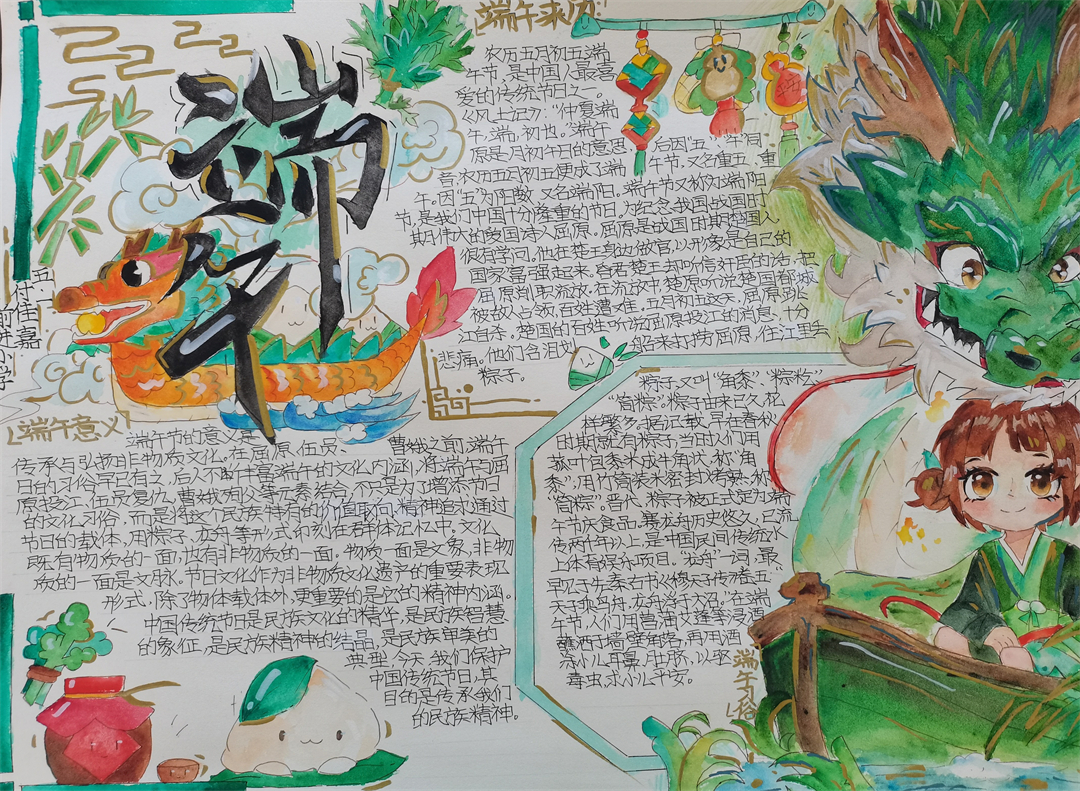 端午
端午来历:
农历五月初五端
午节,是中国人最喜
爱的传统节日之一。
《风土记》:“仲夏端
午,端,初也。”端午
原是月初午日的意思,后因“五”“午”同
音,农历五月初五便成了端午节,又名重五、重
午。因“五”为阳数,又名端阳。端午节又称为端阳
节,是我们中国十分隆重的节日,为纪念我国战国时
期伟大的爱国诗人屈原。屈原是战国时期楚国人,
很有学问,他在楚王身边做官,以形象是自己的
国家富强起来。
屈原削职流放。在流放中,屈原听说楚国都城
被敌人占领,百姓遭难。五月初五这天,屈原到
江自杀。楚国的百姓听说屈原投江的消息,十分
悲痛。他们含泪划船来打捞屈原,往江里丢
粽子。
端午意义
端午节的意义是
传承与弘扬非物质文化。在屈原、伍员、曹娥之前,端午
日的习俗早已有之,后人不断丰富端午的文化内涵,将端午与屈
原投江、伍员复仇、曹娥殉父等元素结合,不只是为了增添节日
的文化习俗,而是将这个民族特有的价值取向、精神追求通过
节日的载体,用粽子、龙舟等形式,时刻在群体记忆中。文化
既有物质的一面,也有非物质的一面。物质一面是文象,非物
质的一面是文脉。节日文化作为非物质文化遗产的重要表现
形式,除了物体载体外,更重要的是它的精神内涵。
中国传统节日是民族文化的精华,是民族智慧
的象征,是民族精神的结晶,是民族审美的
典型,今天,我们保护
中国传统节日,其
目的是传承我们
的民族精神。
端午习俗
“粽子,又叫“角黍”、“粽籺”、
“筒粽”。粽子由来已久,花
样繁多。据记载,早在春秋
时期就有粽子,当时人们用
菰叶包黍米成牛角状,称“角
黍”,用竹筒装米密封烤熟,称
“筒粽”。晋代,粽子被正式定为端
午节庆食品。赛龙舟历史悠久,已流
传两千年以上,是中国民间传统水
上体育娱乐项目。“龙舟”一词,最
早见于先秦古书《穆天子传》卷五:
天子乘鸟舟、龙舟浮于大沼。”在端
午节,人们用菖蒲艾蓬等浸酒
蘸洒于墙壁角落,再用酒
涂小儿耳鼻、肚脐,以驱
毒虫,求小儿平安。